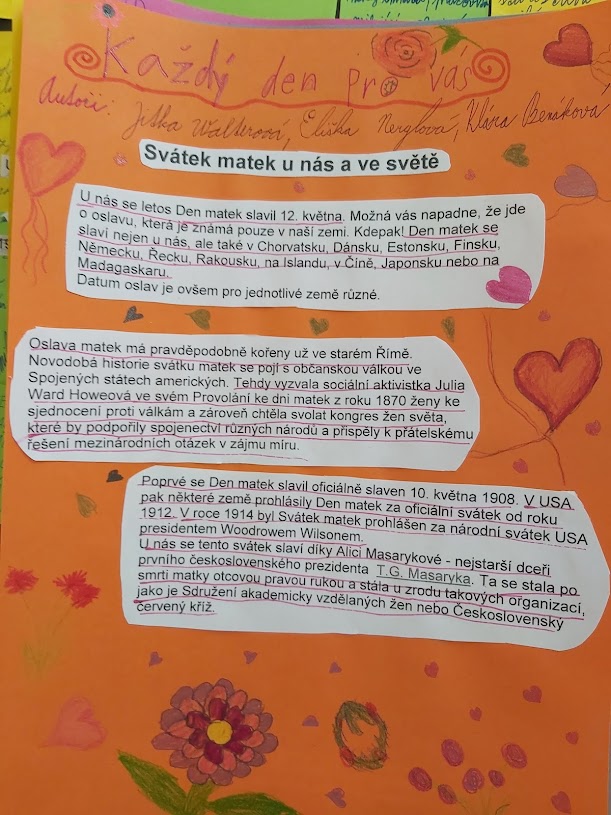 Každý den pro vás
Autoři: Jitka Walterová, Eliška Nerglová, Klára Benáková
Svátek matek u nás a ve světě
U nás se letos Den matek slavil 12. května. Možná vás napadne, že jde
o oslavu, která je známá pouze v naší zemi. Kdepak! Den matek se
slaví nejen u nás, ale také v Chorvatsku, Dánsku, Estonsku, Finsku,
Německu, Řecku, Rakousku, na Islandu, v Číně, Japonsku nebo na
Madagaskaru.
Datum oslav je ovšem pro jednotlivé země různé.
Oslava matek má pravděpodobně kořeny už ve starém Římě.
Novodobá historie svátku matek se pojí s občanskou válkou ve
Spojených státech amerických. Tehdy vyzvala sociální aktivistka Julia
Ward Howeová ve svém Provolání ke dni matek z roku 1870 ženy ke
sjednocení proti válkám a zároveň chtěla svolat kongres žen světa,
které by podpořily spojenectví různých národů a přispěly k přátelskému
řešení mezinárodních otázek v zájmu míru.
Poprvé se Den matek slavil oficiálně slaven 10. května 1908. V USA
pak některé země prohlásily Den matek za oficiální svátek od roku
1912. V roce 1914 byl Svátek matek prohlášen za národní svátek USA
presidentem Woodrowem Wilsonem.
U nás se tento svátek slaví díky Alici Masarykové - nejstarší dceři
prvního československého prezidenta T.G. Masaryka. Ta se stala po
smrti matky otcovou pravou rukou a stála u zrodu takových organizací,
jako je Sdružení akademicky vzdělaných žen nebo Československý
červený kříž.